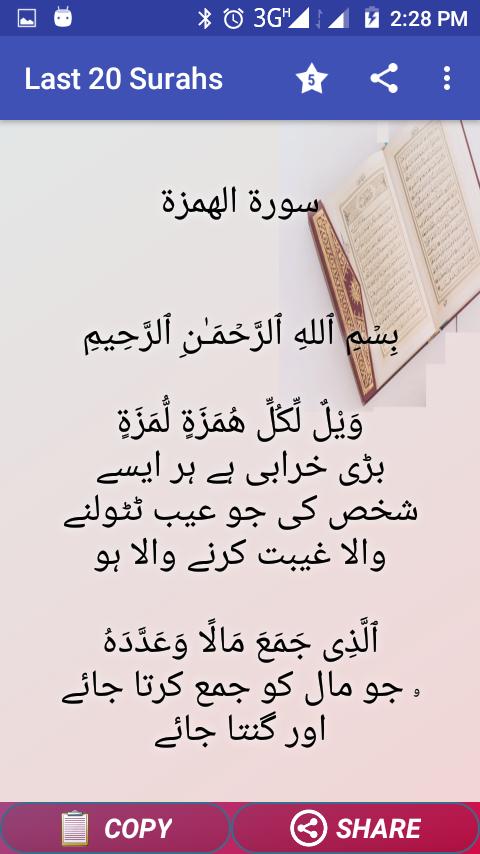 3G H 2:28 PM
Last 20 Surahs
5
سورة الهمزة
بِسْمِ ٱللهِ ٱلرَّحْمَـٰنِ ٱلرَّحِيمِ
وَيْلٌ لِّكُلِّ هُمَزَةٍ لُّمَزَةٍ
بڑی خرابی ہے ہر ایسے
شخص کی جو عیب ٹٹولنے
والا غیبت کرنے والا ہو
ٱلَّذِى جَمَعَ مَالًا وَعَدَّدَهُ
ۥ جو مال کو جمع کرتا جائے
اور گنتا جائے
COPY
SHARE